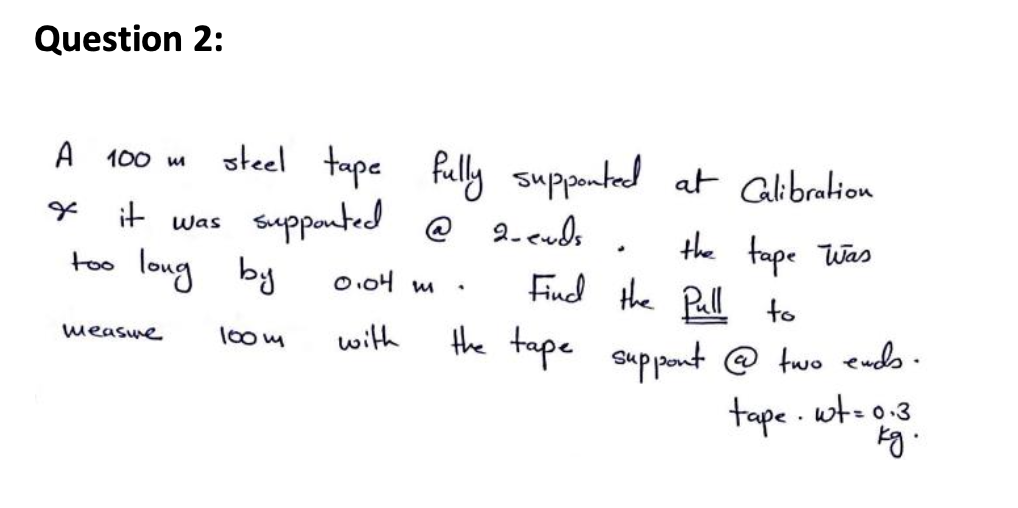 Question 2:
A 100 m steel tape fully supported at Calibration
& it was supported @ 2-ends. the tape was
too long by 0.04 m. Find the Pull to
measure 100 m with the tape support @ two ends.
tape. wt = 0.3
kg.